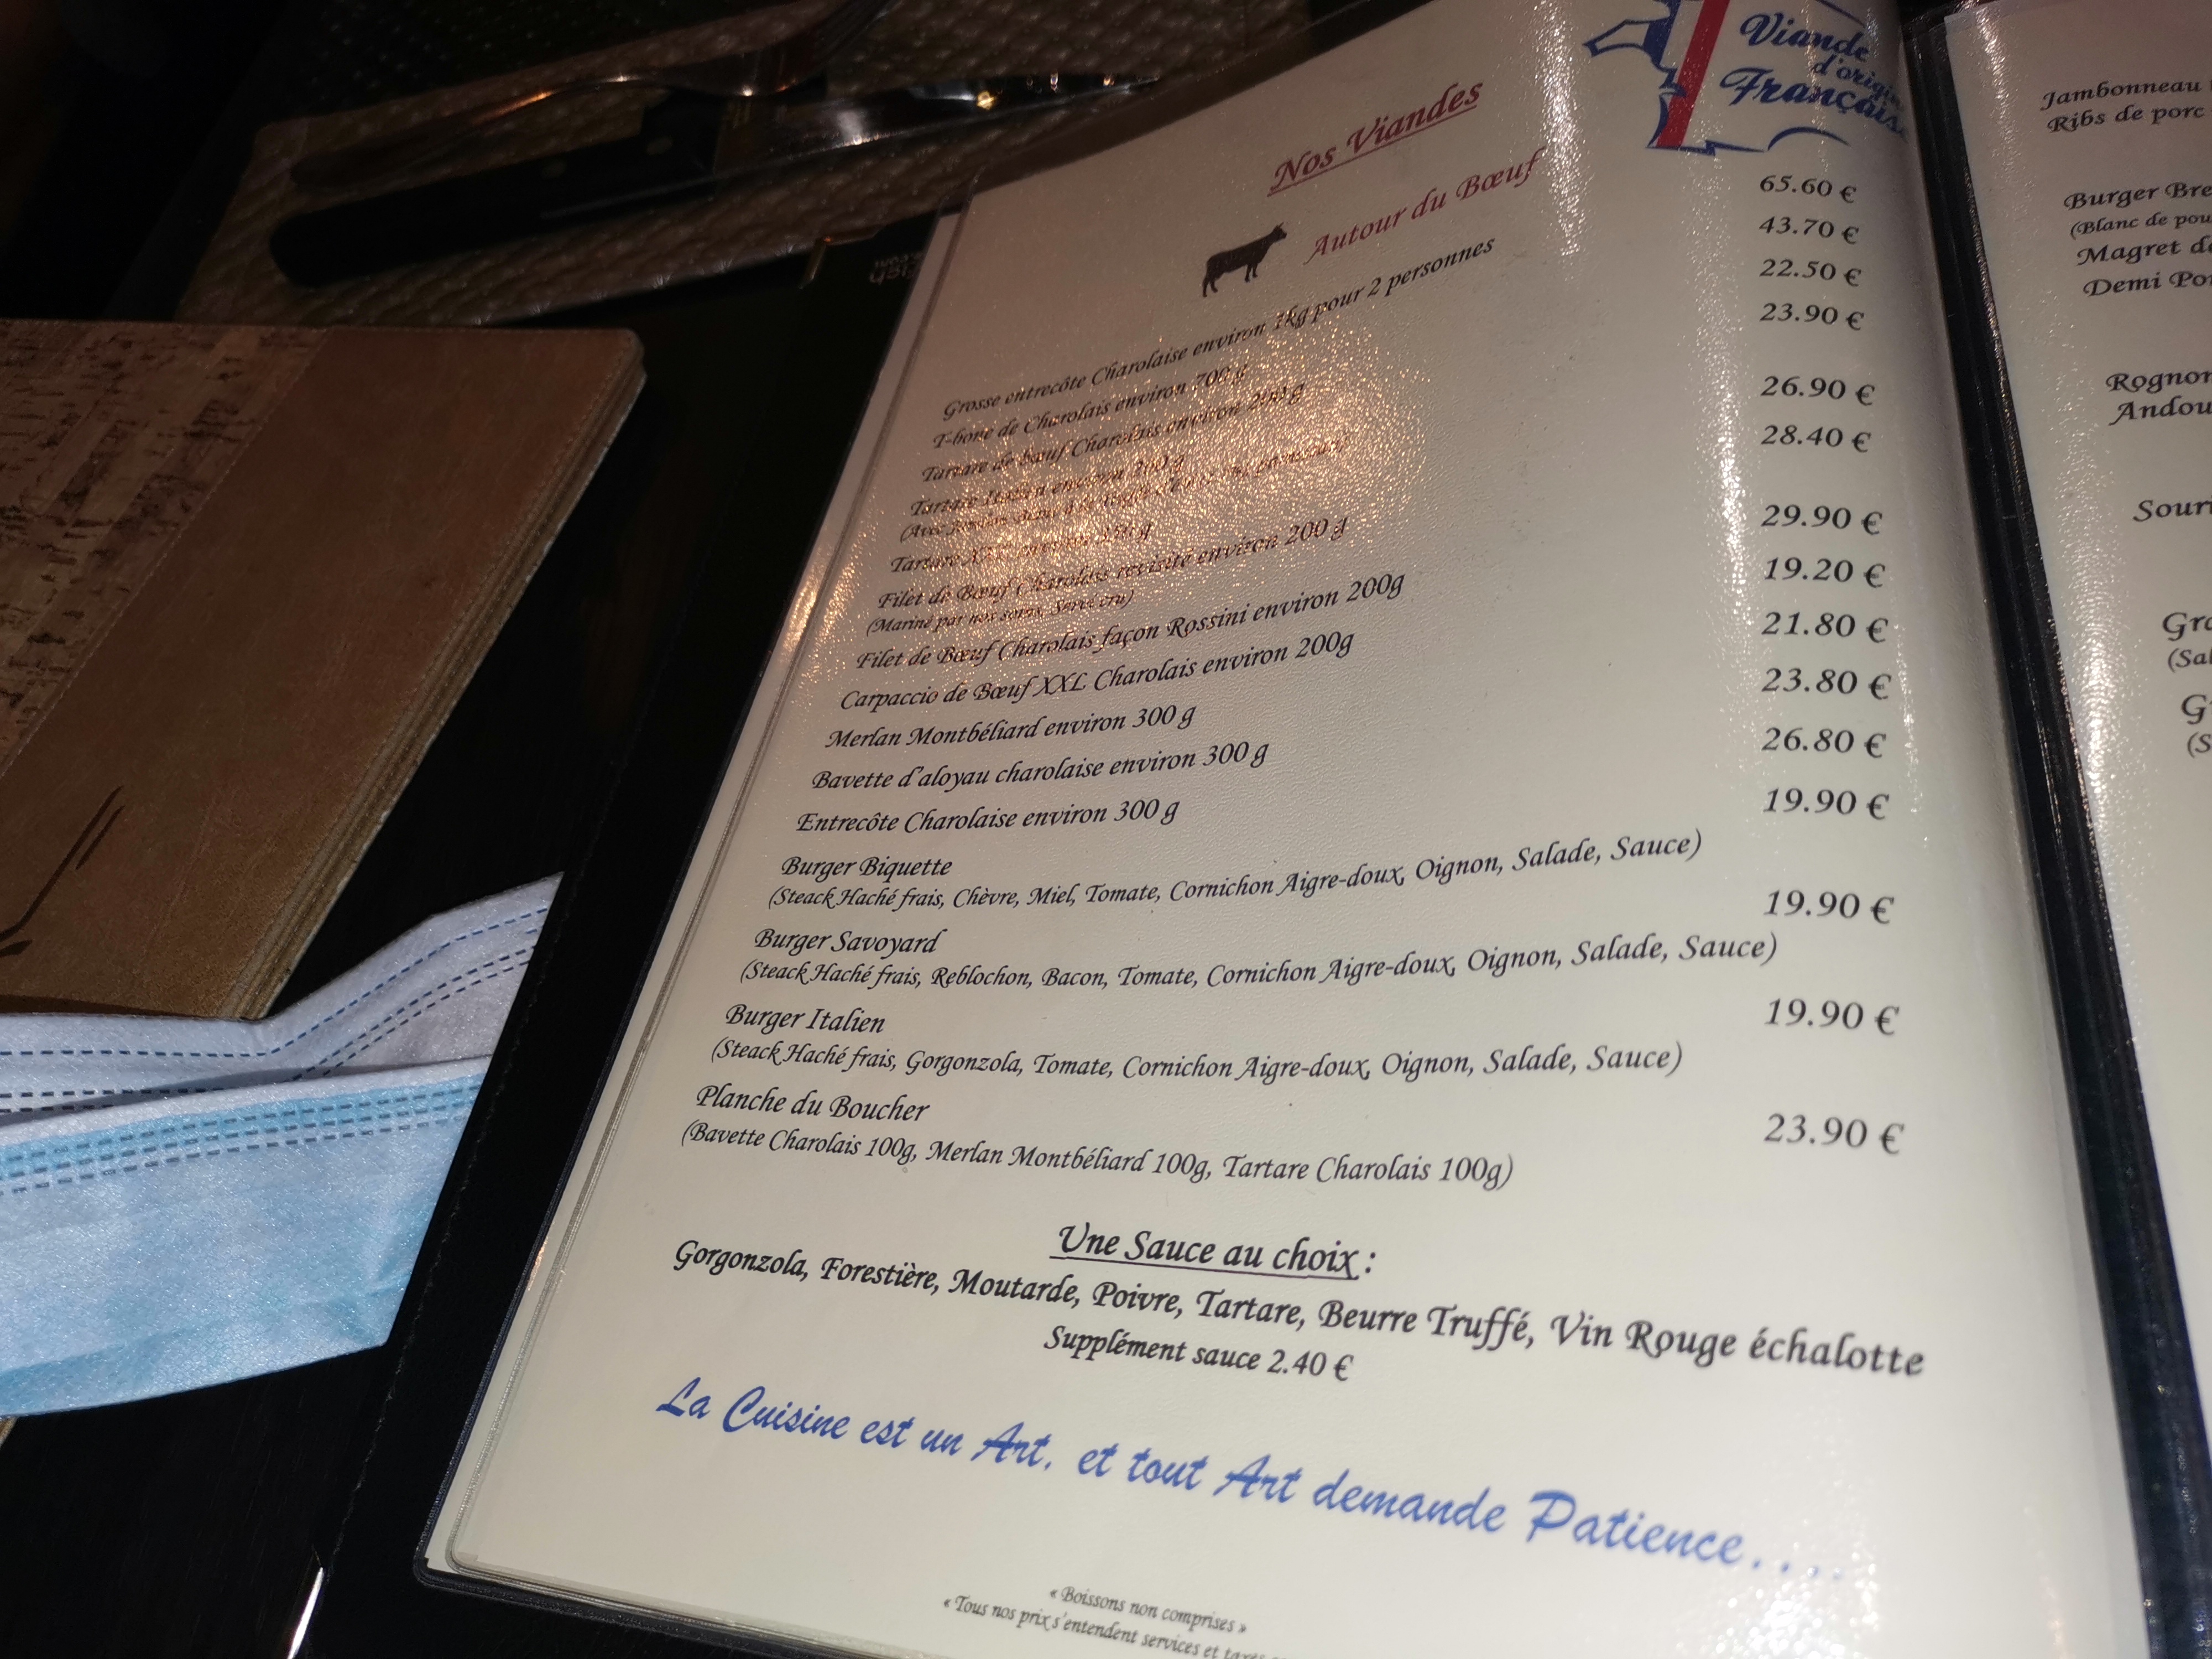 Viande
d'origine
Française
Nos Viandes
Autour du Bœuf
Grosse entrecôte Charolaise environ 1kg pour 2 personnes 65.60 €
T-bone de Charolais environ 700 g 43.70 €
Tartare de bœuf Charolais environ 200 g 22.50 €
Tartare Italien environ 200 g 23.90 €
Tartare 26.90 €
Filet de Bœuf Charolais revisité environ 200 g 28.40 €
(Mariné par nos soins, Servi cru)
Filet de Bœuf Charolais façon Rossini environ 200g 29.90 €
Carpaccio de Bœuf XXL Charolais environ 200g 19.20 €
Merlan Montbéliard environ 300 g 21.80 €
Bavette d'aloyau charolaise environ 300 g 23.80 €
Entrecôte Charolaise environ 300 g 26.80 €
Burger Biquette 19.90 €
(Steack Haché frais, Chèvre, Miel, Tomate, Cornichon Aigre-doux, Oignon, Salade, Sauce)
Burger Savoyard 19.90 €
(Steack Haché frais, Reblochon, Bacon, Tomate, Cornichon Aigre-doux, Oignon, Salade, Sauce)
Burger Italien 19.90 €
(Steack Haché frais, Gorgonzola, Tomate, Cornichon Aigre-doux, Oignon, Salade, Sauce)
Planche du Boucher 23.90 €
(Bavette Charolais 100g, Merlan Montbéliard 100g, Tartare Charolais 100g)
Une Sauce au choix :
Gorgonzola, Forestière, Moutarde, Poivre, Tartare, Beurre Truffé, Vin Rouge échalotte
Supplément sauce 2.40 €
La Cuisine est un Art. et tout Art demande Patience....
« Boissons non comprises »
« Tous nos prix s'entendent services et
Jambonneau
Ribs de porc
Burger
(Blanc de
Magret
Demi